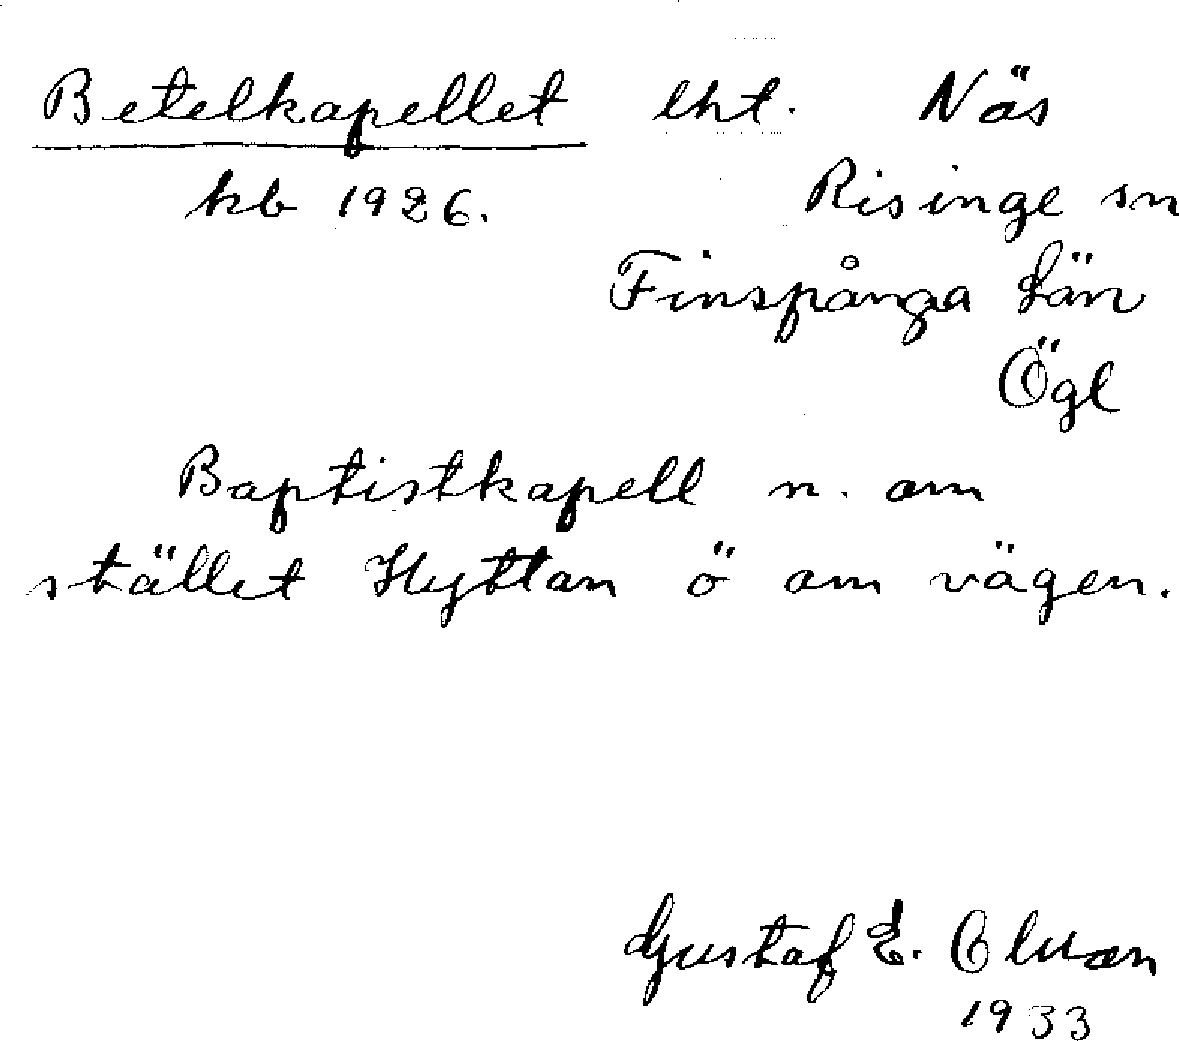 Betelkapellet lht. Näs
kb 1926. Risinge sn
Finspånga län
Ögl
Baptistkapell n. om
stället Hyttan ö om vägen.
Gustaf E.
1933